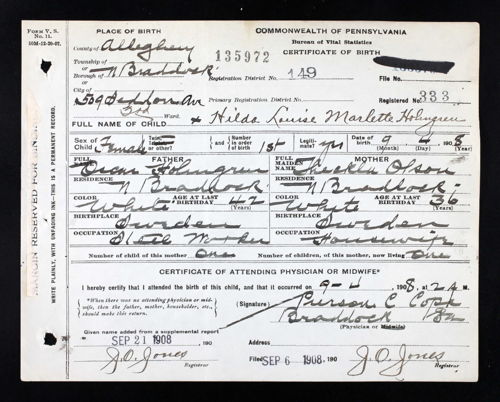 FORM V. S.
No. 11.
10M-12-20-07.
PLACE OF BIRTH
County of Allegheny
Township of
or
Borough of N Braddock
or
City of
509 Ave
3rd Ward.
COMMONWEALTH OF PENNSYLVANIA
Bureau of Vital Statistics
CERTIFICATE OF BIRTH
135972
Registration District No. 149
File No.
Primary Registration District No.
Registered No. 333
FULL NAME OF CHILD Hilda Louise Marlette Holmgren
Sex of Child Female
Twin, or other?
and
Number in order of birth 1st
Legitimate? yes
DATE OF BIRTH 9 4 1908
FATHER
FULL NAME Oscar Holmgren
RESIDENCE N Braddock
COLOR White
AGE AT LAST BIRTHDAY 42 (Years)
BIRTHPLACE Sweden
OCCUPATION Steel Worker
Number of child of this mother One
MOTHER
FULL MAIDEN NAME Olson
RESIDENCE N Braddock
COLOR White
AGE AT LAST BIRTHDAY 36 (Years)
BIRTHPLACE Sweden
OCCUPATION Housewife
Number of children, of this mother, now living One
CERTIFICATE OF ATTENDING PHYSICIAN OR MIDWIFE*
I hereby certify that I attended the birth of this child, and that it occurred on 9-4 1908, at 2 A M.
*When there was no attending physician or midwife, then the father, mother, householder, etc., should make this return.
(Signature) Pierson C Cope
Braddock Pa
(Physician or Midwife)
Given name added from a supplemental report
SEP 21 1908 190
J. O. Jones
Registrar
Address
Filed SEP 6 1908, 190
J. O. Jones
Registrar
MARGIN RESERVED FOR BINDING
WRITE PLAINLY, WITH UNFADING INK—THIS IS A PERMANENT RECORD.